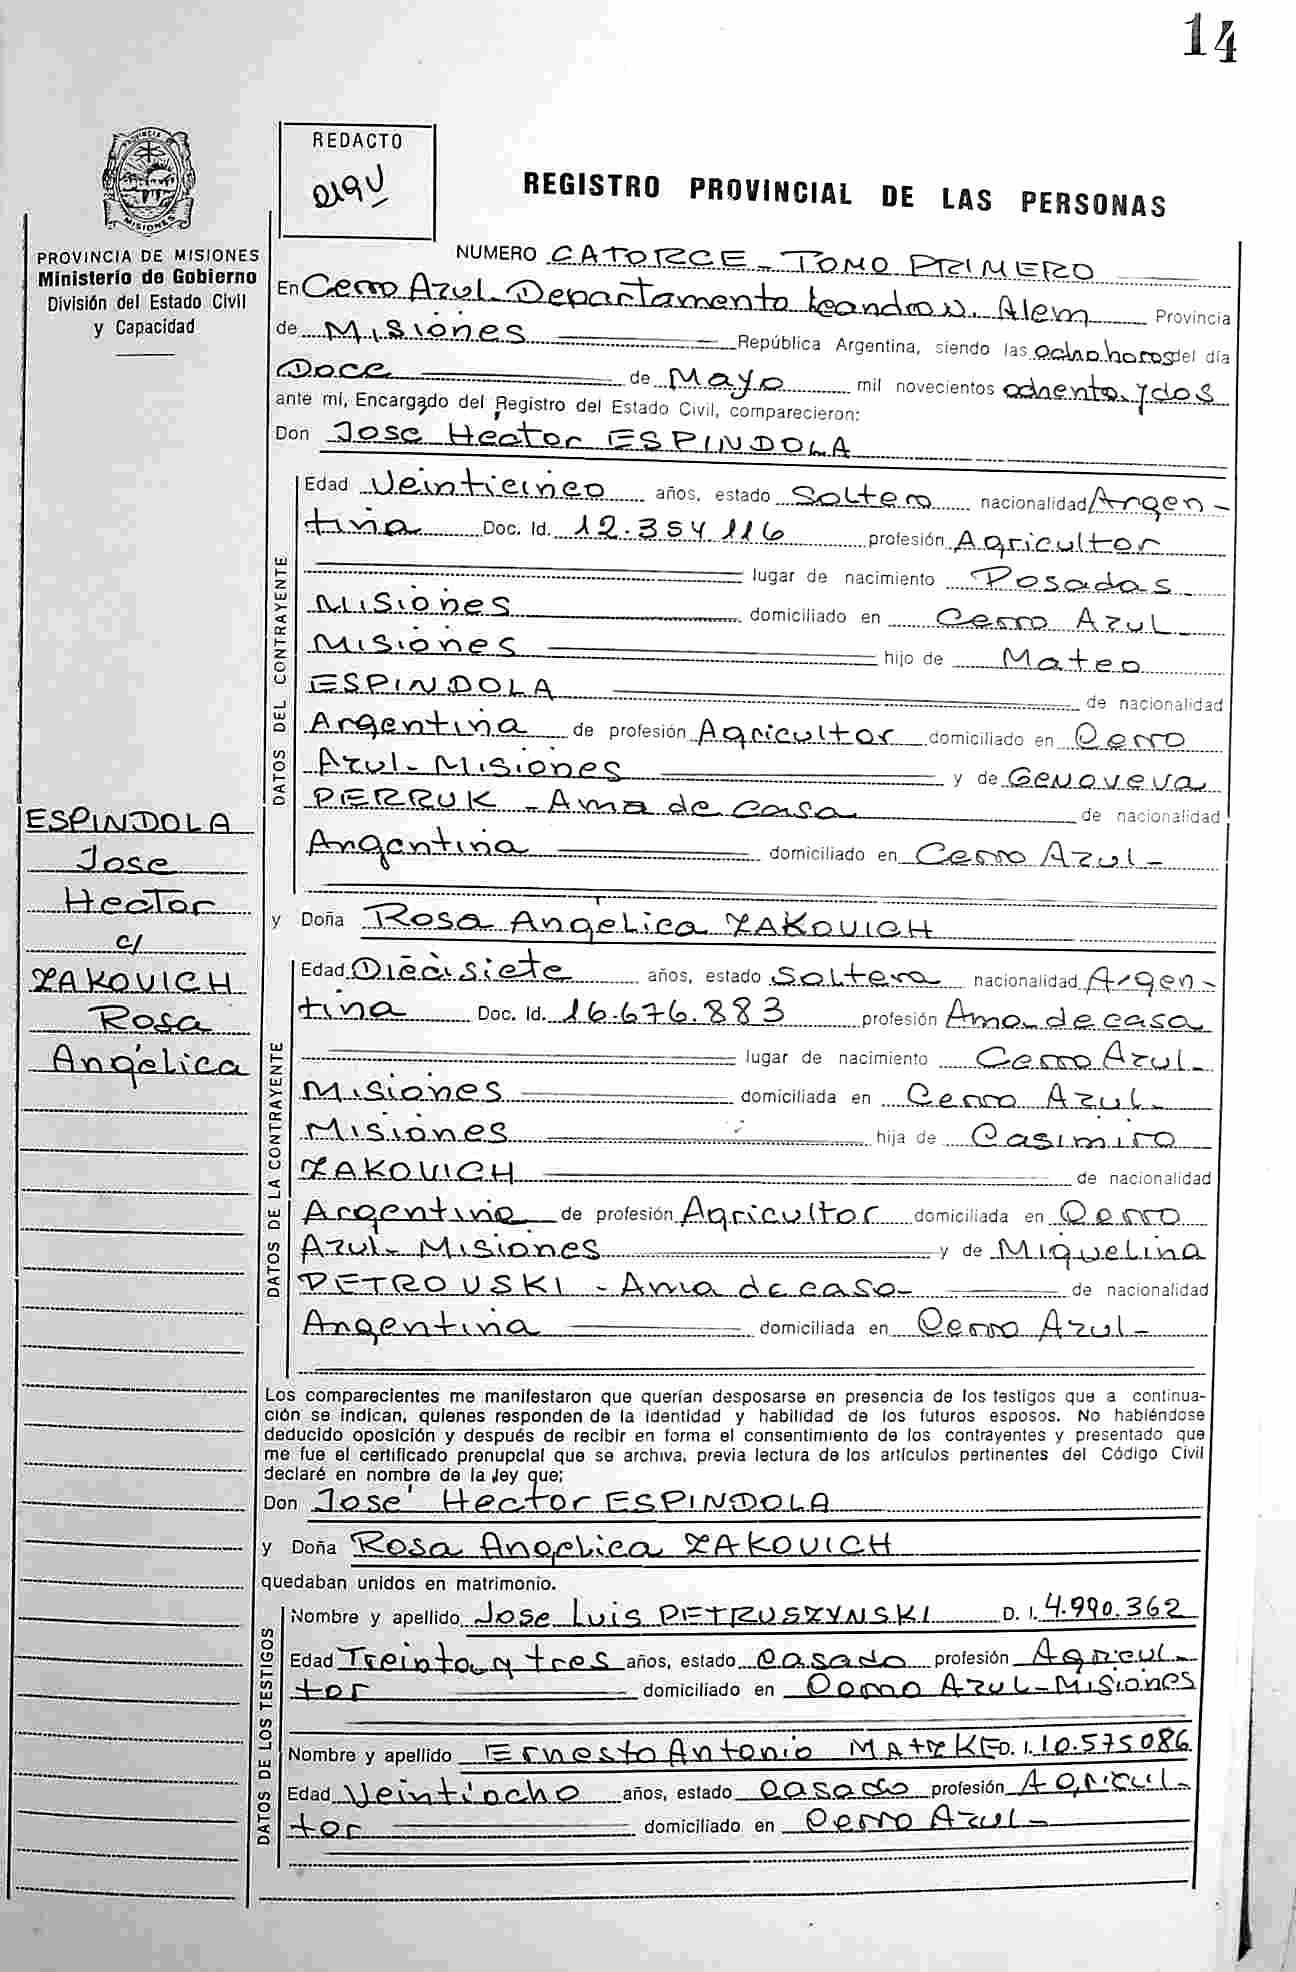 14
PROVINCIA DE MISIONES
Ministerio de Gobierno
División del Estado Civil
y Capacidad
REDACTO
REGISTRO PROVINCIAL DE LAS PERSONAS
NUMERO CATORCE - TOMO PRIMERO
En Cerro Azul - Departamento Leandro N. Alem Provincia
de Misiones República Argentina, siendo las ocho horas del día
Doce de Mayo mil novecientos ochenta y dos
ante mí, Encargado del Registro del Estado Civil, comparecieron:
Don Jose Héctor ESPINDOLA
DATOS DEL CONTRAYENTE
Edad Veinticinco años, estado Soltero nacionalidad Argen-
tina Doc. Id. 12.354.116 profesión Agricultor
lugar de nacimiento Posadas
Misiones domiciliado en Cerro Azul -
Misiones hijo de Mateo
ESPINDOLA de nacionalidad
Argentina de profesión Agricultor domiciliado en Cerro
Azul - Misiones y de Genoveva
PERRUK - Ama de casa de nacionalidad
Argentina domiciliado en Cerro Azul -
ESPINDOLA
Jose
Hector
c/
ZAKOVICH
Rosa
Angélica
y Doña Rosa Angélica ZAKOVICH
DATOS DE LA CONTRAYENTE
Edad Diecisiete años, estado Soltera nacionalidad Argen-
tina Doc. Id. 16.676.883 profesión Ama de casa
lugar de nacimiento Cerro Azul -
Misiones domiciliada en Cerro Azul -
Misiones hija de Casimiro
ZAKOVICH de nacionalidad
Argentina de profesión Agricultor domiciliada en Cerro
Azul - Misiones y de Miquelina
PETROVSKI - Ama de casa - de nacionalidad
Argentina domiciliada en Cerro Azul -
Los comparecientes me manifestaron que querían desposarse en presencia de los testigos que a continua-
ción se indican, quienes responden de la identidad y habilidad de los futuros esposos. No habiéndose
deducido oposición y después de recibir en forma el consentimiento de los contrayentes y presentado que
me fue el certificado prenupcial que se archiva, previa lectura de los artículos pertinentes del Código Civil
declaré en nombre de la ley que:
Don José Hector ESPINDOLA
y Doña Rosa Angelica ZAKOVICH
quedaban unidos en matrimonio.
DATOS DE LOS TESTIGOS
Nombre y apellido Jose Luis PETRUSZYNSKI D. I. 4.990.362
Edad Treinta y tres años, estado casado profesión Agricul-
tor domiciliado en Cerro Azul - Misiones
Nombre y apellido Ernesto Antonio MATZKE D. I. 10.575086
Edad Veintiocho años, estado casado profesión Agricul-
tor domiciliado en Cerro Azul -